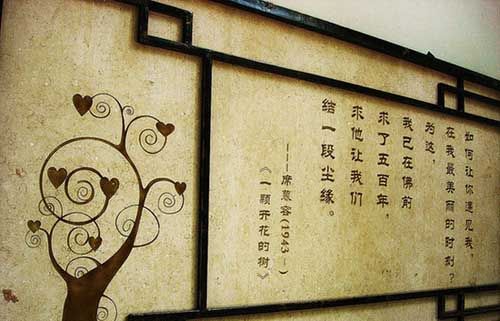 如何让你遇见我,
在我最美丽的时刻?
为这,
我已在佛前
求了五百年,
求他让我们
结一段尘缘。
——席慕容(1943-)
《一颗开花的树》